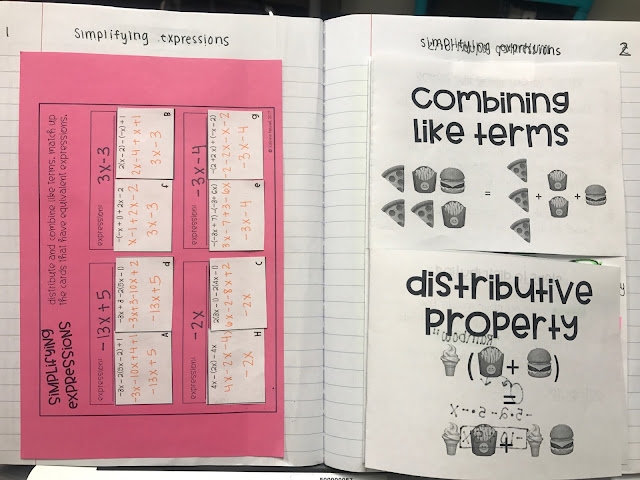 1
Simplifying expressions
SIMPLIFYING
EXPRESSIONS
distribute and combine like terms. match up
the cards that have equivalent expressions.
expression: -13x+5
-3x - 2(5x - 2) + 1
A
-3x-10x+4+1
-13x+5
-3x + 3 - 2(5x - 1)
d
-3x+3-10x+2
-13x+5
expression: 3x-3
-(-x + 1) + 2x - 2
f
x-1+2x-2
3x-3
2(x - 2) - (-x) + 1
B
2x-4+x+1
3x-3
expression: -2x
4x - (2x) - 4x
H
4x-2x-4x
-2x
2(3x - 1) - 2(4x - 1)
C
6x-2-8x+2
-2x
expression: -3x-4
-(-3x + 7) - (-3 + 6x)
e
3x-7+3-6x
-3x-4
-(2 + 2x) + (-x - 2)
g
-2-2x-x-2
-3x-4
simplifying expressions
2
combining
like terms
= + +
distributive
property
( + )
=
+